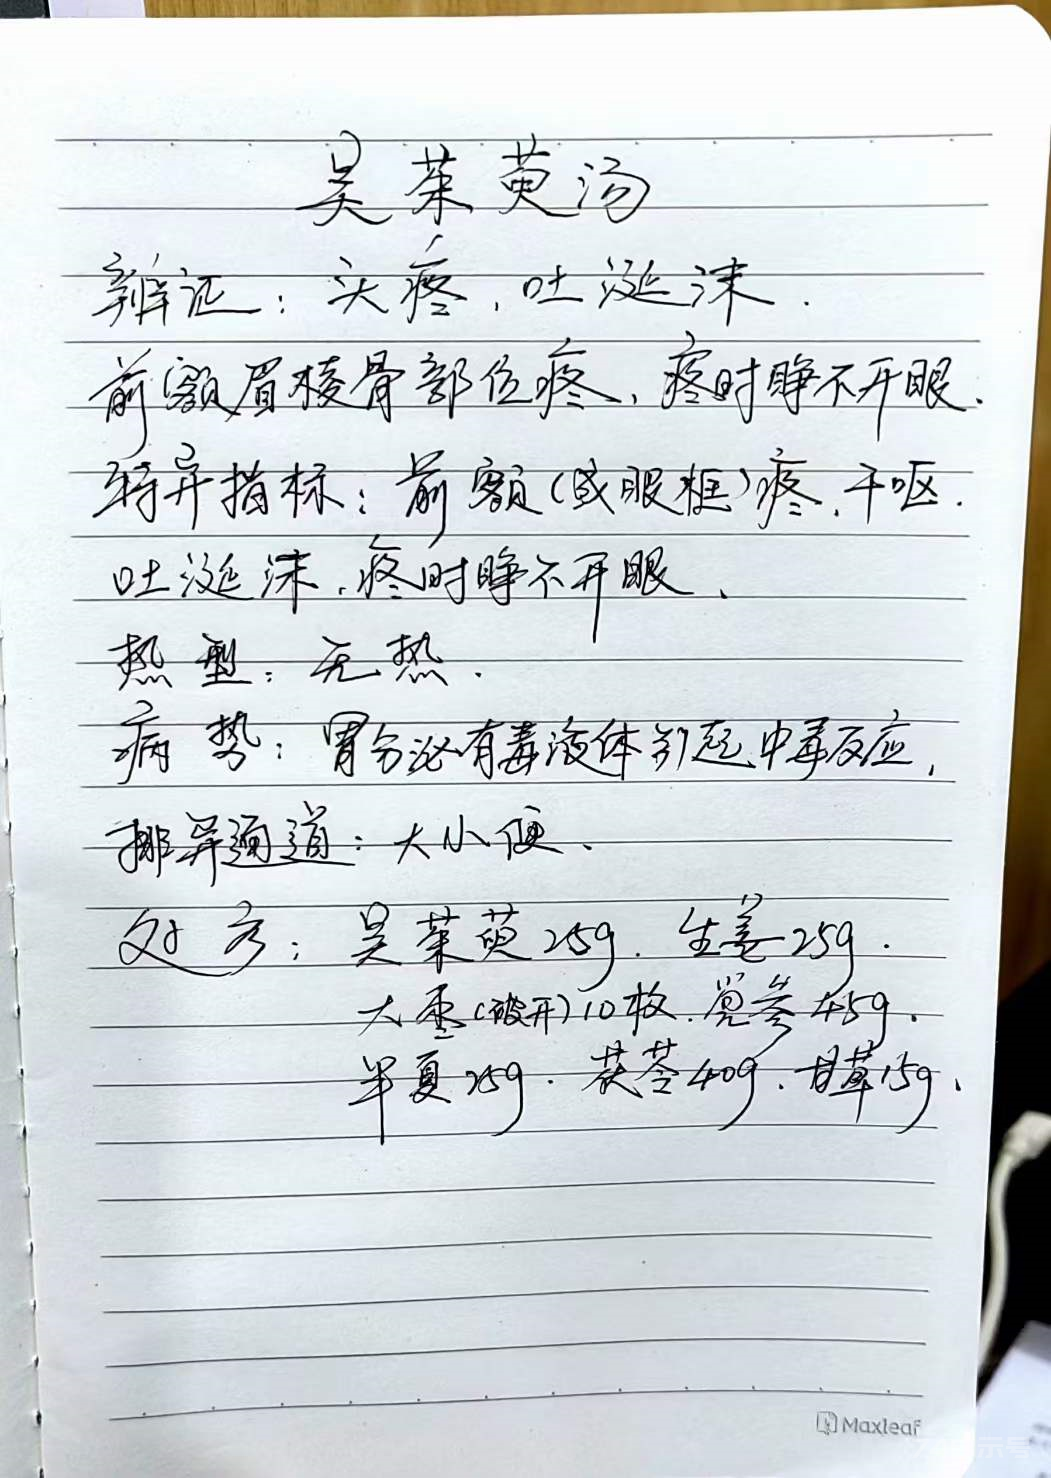 吴茱萸汤
辨证：头疼，吐涎沫．
前额眉棱骨部位疼，疼时睁不开眼．
特异指标：前额（或眼框）疼，干呕．
吐涎沫，疼时睁不开眼、
热型：无热．
病势：胃分泌有毒液体引起中毒反应，
排异通道：大小便、
处方：吴茱萸25g．生姜25g．
大枣（破开）10枚．党参45g．
半夏25g．茯苓40g．甘草15g、
Maxleaf